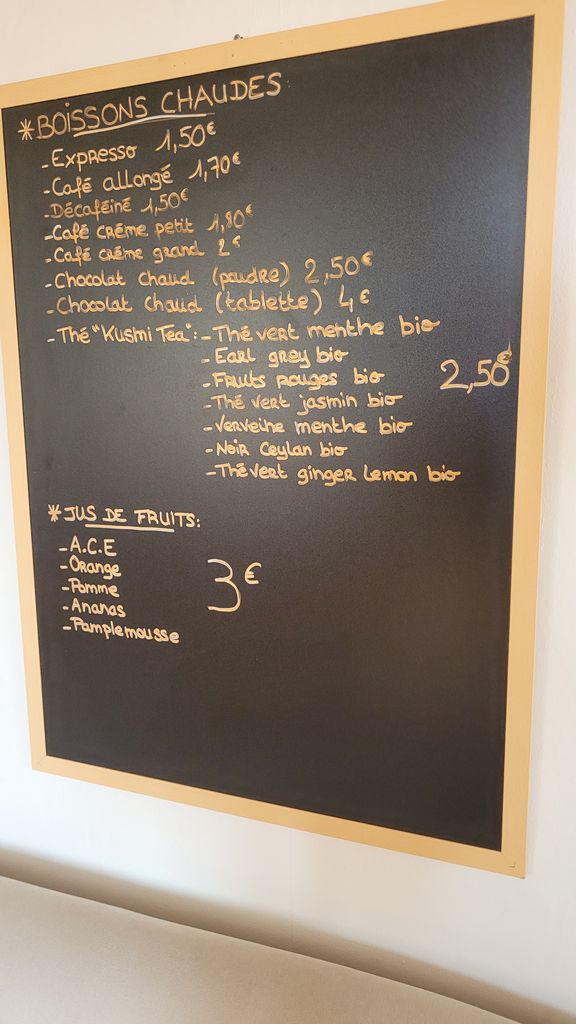 *BOISSONS CHAUDES
-Expresso 1,50€
-Café allongé 1,70€
-Décaféiné 1,50€
-Café crème petit 1,80€
-Café crème grand 2€
-Chocolat chaud (poudre) 2,50€
-Chocolat chaud (tablette) 4€
-Thé "Kusmi Tea":-Thé vert menthe bio
-Earl grey bio
-Fruits rouges bio 2,50€
-Thé vert jasmin bio
-Verveine menthe bio
-Noir Ceylan bio
-Thé vert ginger lemon bio
*JUS DE FRUITS:
-A.C.E
-Orange 3€
-Pomme
-Ananas
-Pamplemousse